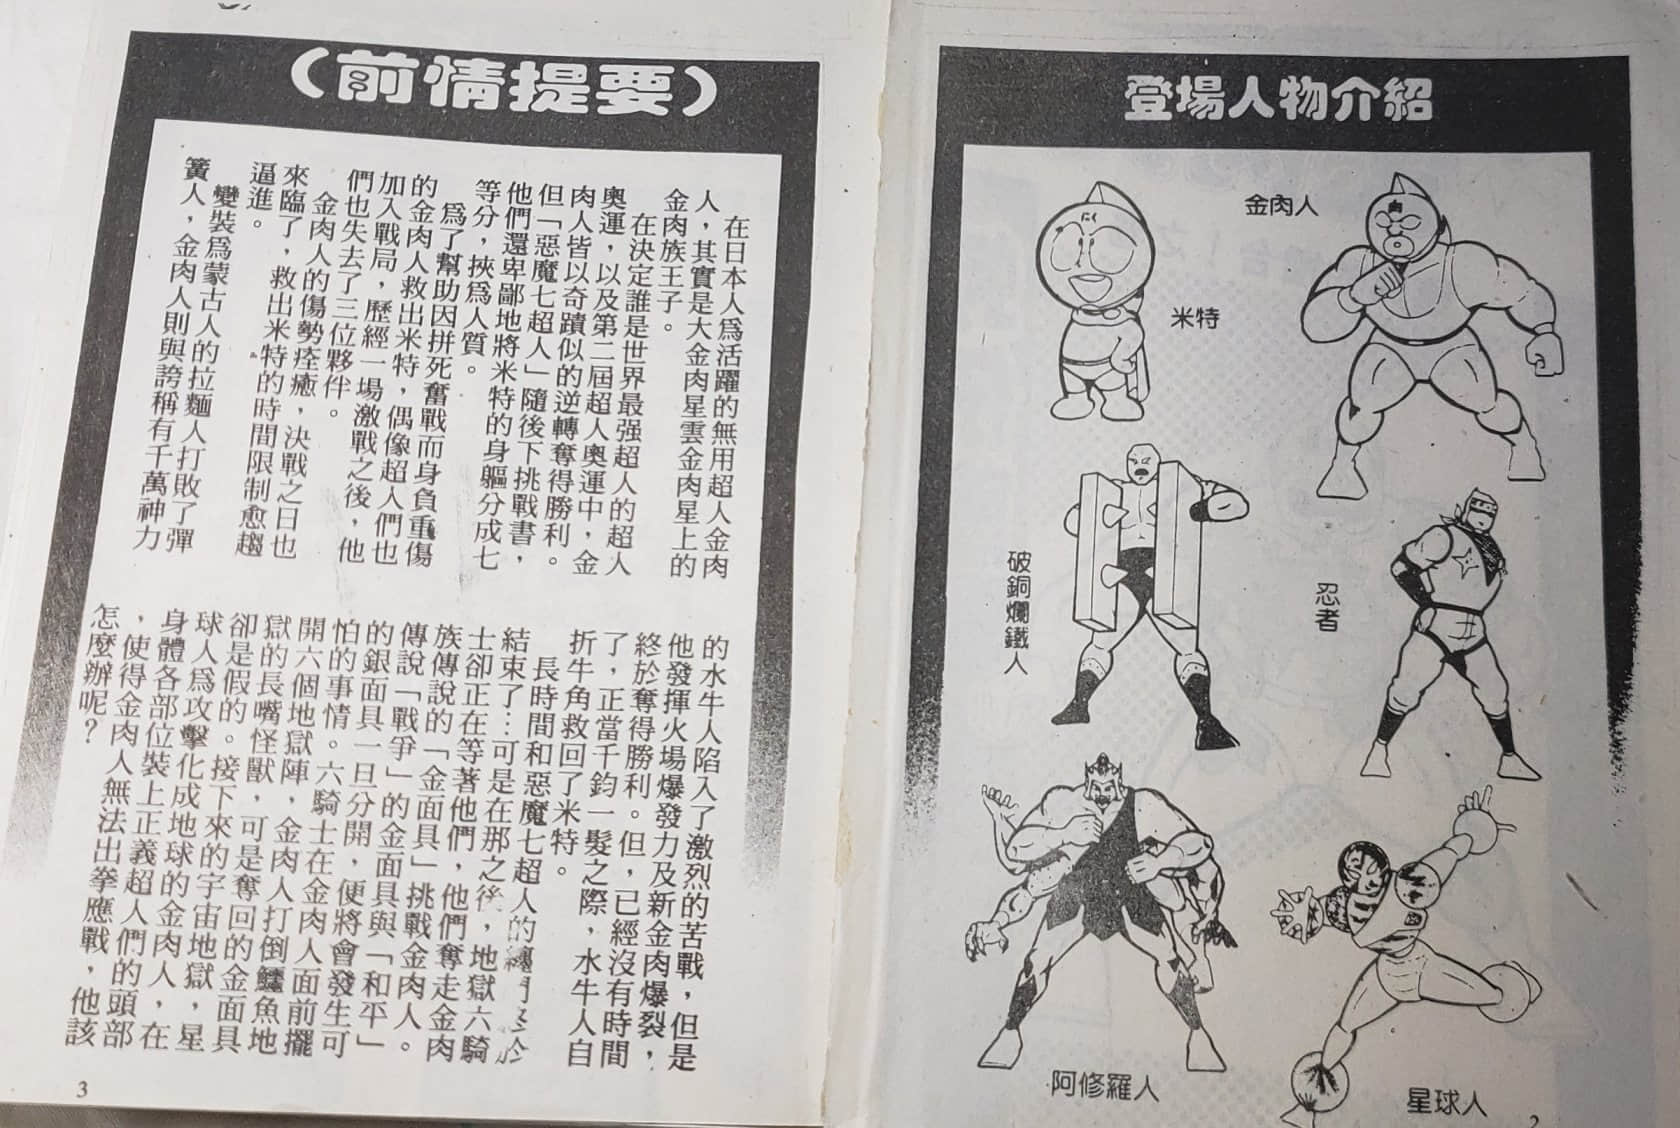 登場人物介紹
金肉人
米特
忍者
破銅爛鐵人
星球人
阿修羅人
2
(前情提要)
在日本人為活躍的無用超人金肉
人，其實是大金肉星雲金肉星上的
金肉族王子。
在決定誰是世界最强超人的超人
奧運，以及第二屆超人奧運中，金
肉人皆以奇蹟似的逆轉奪得勝利。
但「惡魔七超人」隨後下挑戰書，
他們還卑鄙地將米特的身軀分成七
等分，挾為人質。
為了幫助因拼死奮戰而身負重傷
的金肉人救出米特，偶像超人們也
加入戰局，歷經一場激戰之後，他
們也失去了三位夥伴。
金肉人的傷勢痊癒，決戰之日也
來臨了，救出米特的時間限制愈趨
逼進。
變裝為蒙古人的拉麵人打敗了彈
簧人，金肉人則與誇稱有千萬神力
的水牛人陷入了激烈的苦戰，但是
他發揮火場爆發力及新金肉爆裂，
終於奪得勝利。但，已經沒有時間
了，正當千鈞一髮之際，水牛人自
折牛角救回了米特。
長時間和惡魔七超人的纏鬥終於
結束了…可是在那之後，地獄六騎
士卻正在等著他們，他們奪走金肉
族傳說的「金面具」挑戰金肉人。
傳說「戰爭」的金面具與「和平」
的銀面具一旦分開，便將會發生可
怕的事情。六騎士在金肉人面前擺
開六個地獄陣，金肉人打倒鱷魚地
獄的長嘴怪獸，可是奪回的金面具
卻是假的。接下來的宇宙地獄，星
球人為攻擊化成地球的金肉人，在
身體各部位裝上正義超人們的頭部
，使得金肉人無法出拳應戰，他該
怎麼辦呢？
3